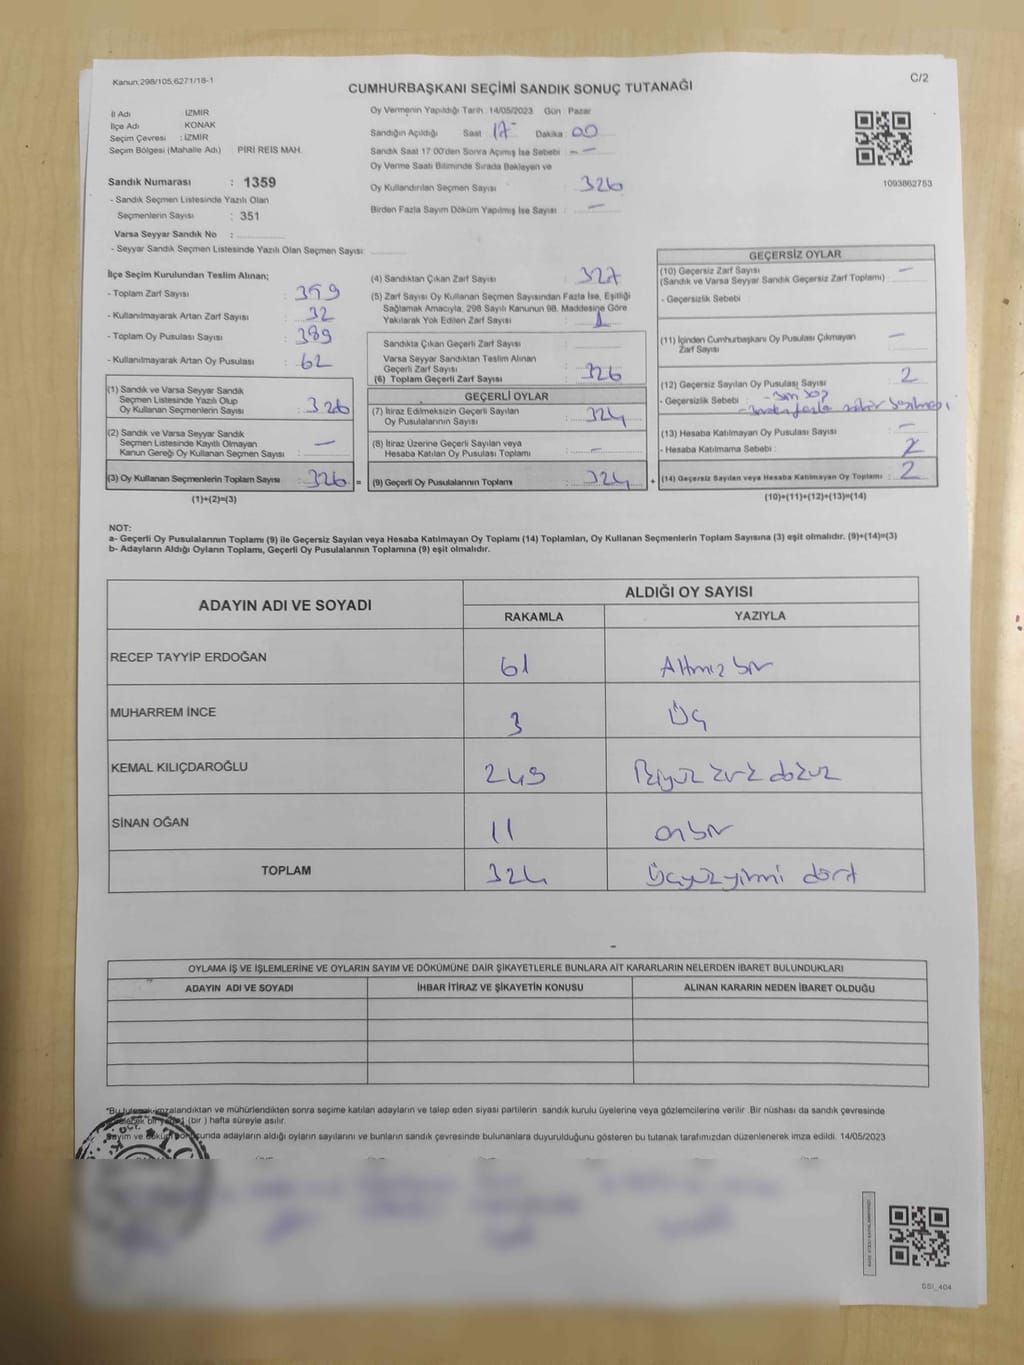 Kanun:298/105,6271/18-1
C/2
CUMHURBAŞKANI SEÇİMİ SANDIK SONUÇ TUTANAĞI
İl Adı İZMİR
İlçe Adı KONAK
Seçim Çevresi : İZMİR
Seçim Bölgesi (Mahalle Adı) : PİRİ REİS MAH.
Sandık Numarası : 1359
- Sandık Seçmen Listesinde Yazılı Olan
Seçmenlerin Sayısı : 351
Varsa Seyyar Sandık No :
- Seyyar Sandık Seçmen Listesinde Yazılı Olan Seçmen Sayısı
Oy Vermenin Yapıldığı Tarih : 14/05/2023 Gün : Pazar
Sandığın Açıldığı Saat : 17 Dakika : 00
Sandık Saat 17:00'den Sonra Açımış İse Sebebi : -
Oy Verme Saati Bitiminde Sırada Bekleyen ve
Oy Kullandırılan Seçmen Sayısı : 326
Birden Fazla Sayım Döküm Yapılmış İse Sayısı : -
1093862753
İlçe Seçim Kurulundan Teslim Alınan;
- Toplam Zarf Sayısı : 359
- Kullanılmayarak Artan Zarf Sayısı : 32
- Toplam Oy Pusulası Sayısı : 389
- Kullanılmayarak Artan Oy Pusulası : 62
(1) Sandık ve Varsa Seyyar Sandık
Seçmen Listesinde Yazılı Olup
Oy Kullanan Seçmenlerin Sayısı : 326
(2) Sandık ve Varsa Seyyar Sandık
Seçmen Listesinde Kayıtlı Olmayan
Kanun Gereği Oy Kullanan Seçmen Sayısı : -
(3) Oy Kullanan Seçmenlerin Toplam Sayısı : 326
(1)+(2)=(3)
(4) Sandıktan Çıkan Zarf Sayısı : 327
(5) Zarf Sayısı Oy Kullanan Seçmen Sayısından Fazla İse, Eşitliği
Sağlamak Amacıyla, 298 Sayılı Kanunun 98. Maddesine Göre
Yakılarak Yok Edilen Zarf Sayısı : 1
Sandıkta Çıkan Geçerli Zarf Sayısı :
Varsa Seyyar Sandıktan Teslim Alınan
Geçerli Zarf Sayısı :
(6) Toplam Geçerli Zarf Sayısı : 326
GEÇERLİ OYLAR
(7) İtiraz Edilmeksizin Geçerli Sayılan
Oy Pusulalarının Sayısı : 324
(8) İtiraz Üzerine Geçerli Sayılan veya
Hesaba Katılan Oy Pusulası Toplamı : -
= (9) Geçerli Oy Pusulalarının Toplamı : 324
GEÇERSİZ OYLAR
(10) Geçersiz Zarf Sayısı : -
(Sandık ve Varsa Seyyar Sandık Geçersiz Zarf Toplamı)
- Geçersizlik Sebebi :
(11) İçinden Cumhurbaşkanı Oy Pusulası Çıkmayan
Zarf Sayısı : -
(12) Geçersiz Sayılan Oy Pusulası Sayısı : 2
- Geçersizlik Sebebi :
(13) Hesaba Katılmayan Oy Pusulası Sayısı : -
- Hesaba Katılmama Sebebi : 2
+ (14) Geçersiz Sayılan veya Hesaba Katılmayan Oy Toplamı : 2
(10)+(11)+(12)+(13)=(14)
NOT:
a- Geçerli Oy Pusulalarının Toplamı (9) ile Geçersiz Sayılan veya Hesaba Katılmayan Oy Toplamı (14) Toplamları, Oy Kullanan Seçmenlerin Toplam Sayısına (3) eşit olmalıdır. (9)+(14)=(3)
b- Adayların Aldığı Oyların Toplamı, Geçerli Oy Pusulalarının Toplamına (9) eşit olmalıdır.
ADAYIN ADI VE SOYADI
ALDIĞI OY SAYISI
RAKAMLA YAZIYLA
RECEP TAYYİP ERDOĞAN 61 Altmış bir
MUHARREM İNCE 3 Üç
KEMAL KILIÇDAROĞLU 249 İkiyüz kırk dokuz
SİNAN OĞAN 11 onbir
TOPLAM 324 Üçyüzyirmi dört
OYLAMA İŞ VE İŞLEMLERİNE VE OYLARIN SAYIM VE DÖKÜMÜNE DAİR ŞİKAYETLERLE BUNLARA AİT KARARLARIN NELERDEN İBARET BULUNDUKLARI
ADAYIN ADI VE SOYADI İHBAR İTİRAZ VE ŞİKAYETİN KONUSU ALINAN KARARIN NEDEN İBARET OLDUĞU
"Bu tutanak imzalandıktan ve mühürlendikten sonra seçime katılan adayların ve talep eden siyasi partilerin sandık kurulu üyelerine veya gözlemcilerine verilir .Bir nüshası da sandık çevresinde
(bir ) hafta süreyle asılır.
Sayım ve döküm sonucunda adayların aldığı oyların sayılarını ve bunların sandık çevresinde bulunanlara duyurulduğunu gösteren bu tutanak tarafımızdan düzenlenerek imza edildi. 14/05/2023
SSI_404